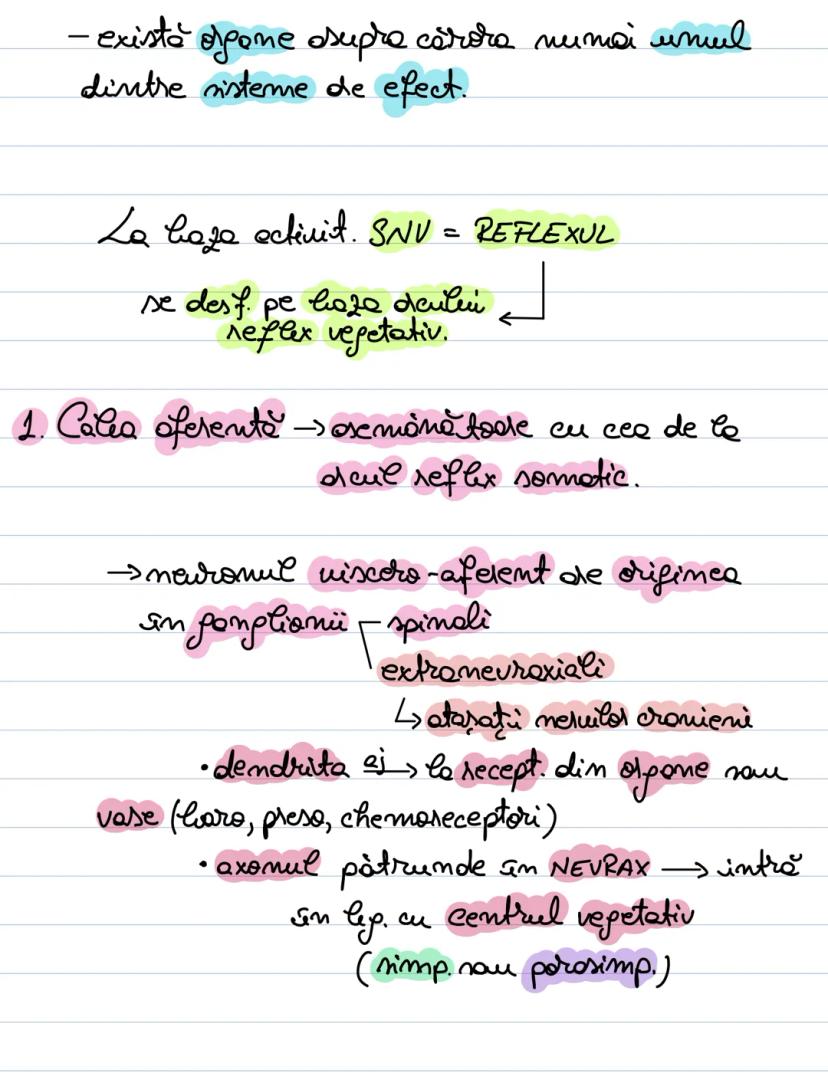 - există organe asupra cărora numai unul
dintre sisteme de efect.
La baza activit. SNV = REFLEXUL
se desf. pe baza arcului
reflex vegetativ.
1. Calea aferentă → asemănătoare cu cea de la
arcul reflex somatic.
→ neuronul viscero-aferent are originea
în ganglionii spinali
extranevraxiali
↳ atașați nervilor cranieni
• dendrita aj → la recept. din organe sau
vase (baro, preso, chemoreceptori)
• axonul pătrunde în NEVRAX → intră
în leg. cu centrul vegetativ
(simp. sau parasimp.)